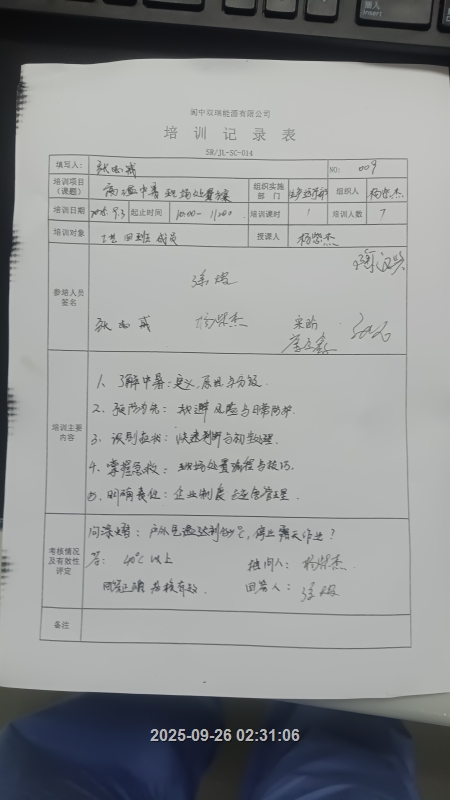 嵌入
Insert
阆中双瑞能源有限公司
培训记录表
SR/JL-SC-014
填写人:
NO: 009
培训项目(课题) 高温中暑现场处置方案 组织实施部门 组织人 杨崇杰
培训日期 2025.9.3 起止时间 10:00-11:00 培训课时 1 培训人数 7
培训对象 丁班 成员 授课人 杨崇杰
参培人员签名
杨崇杰
培训主要内容
1、了解中暑:定义、原因与分级.
2、预防为先:规避风险与日常防护.
3、识别症状:快速判断与初步处理.
4、掌握急救:现场处置流程与技巧.
5、明确责任:企业制度与应急管理.
考核情况及有效性评定
户外气温达到 ℃,停止露天作业?
答: 40℃以上
提问人: 杨崇杰.
回答正确 考核有效.
回答人:
备注
2025-09-26 02:31:06